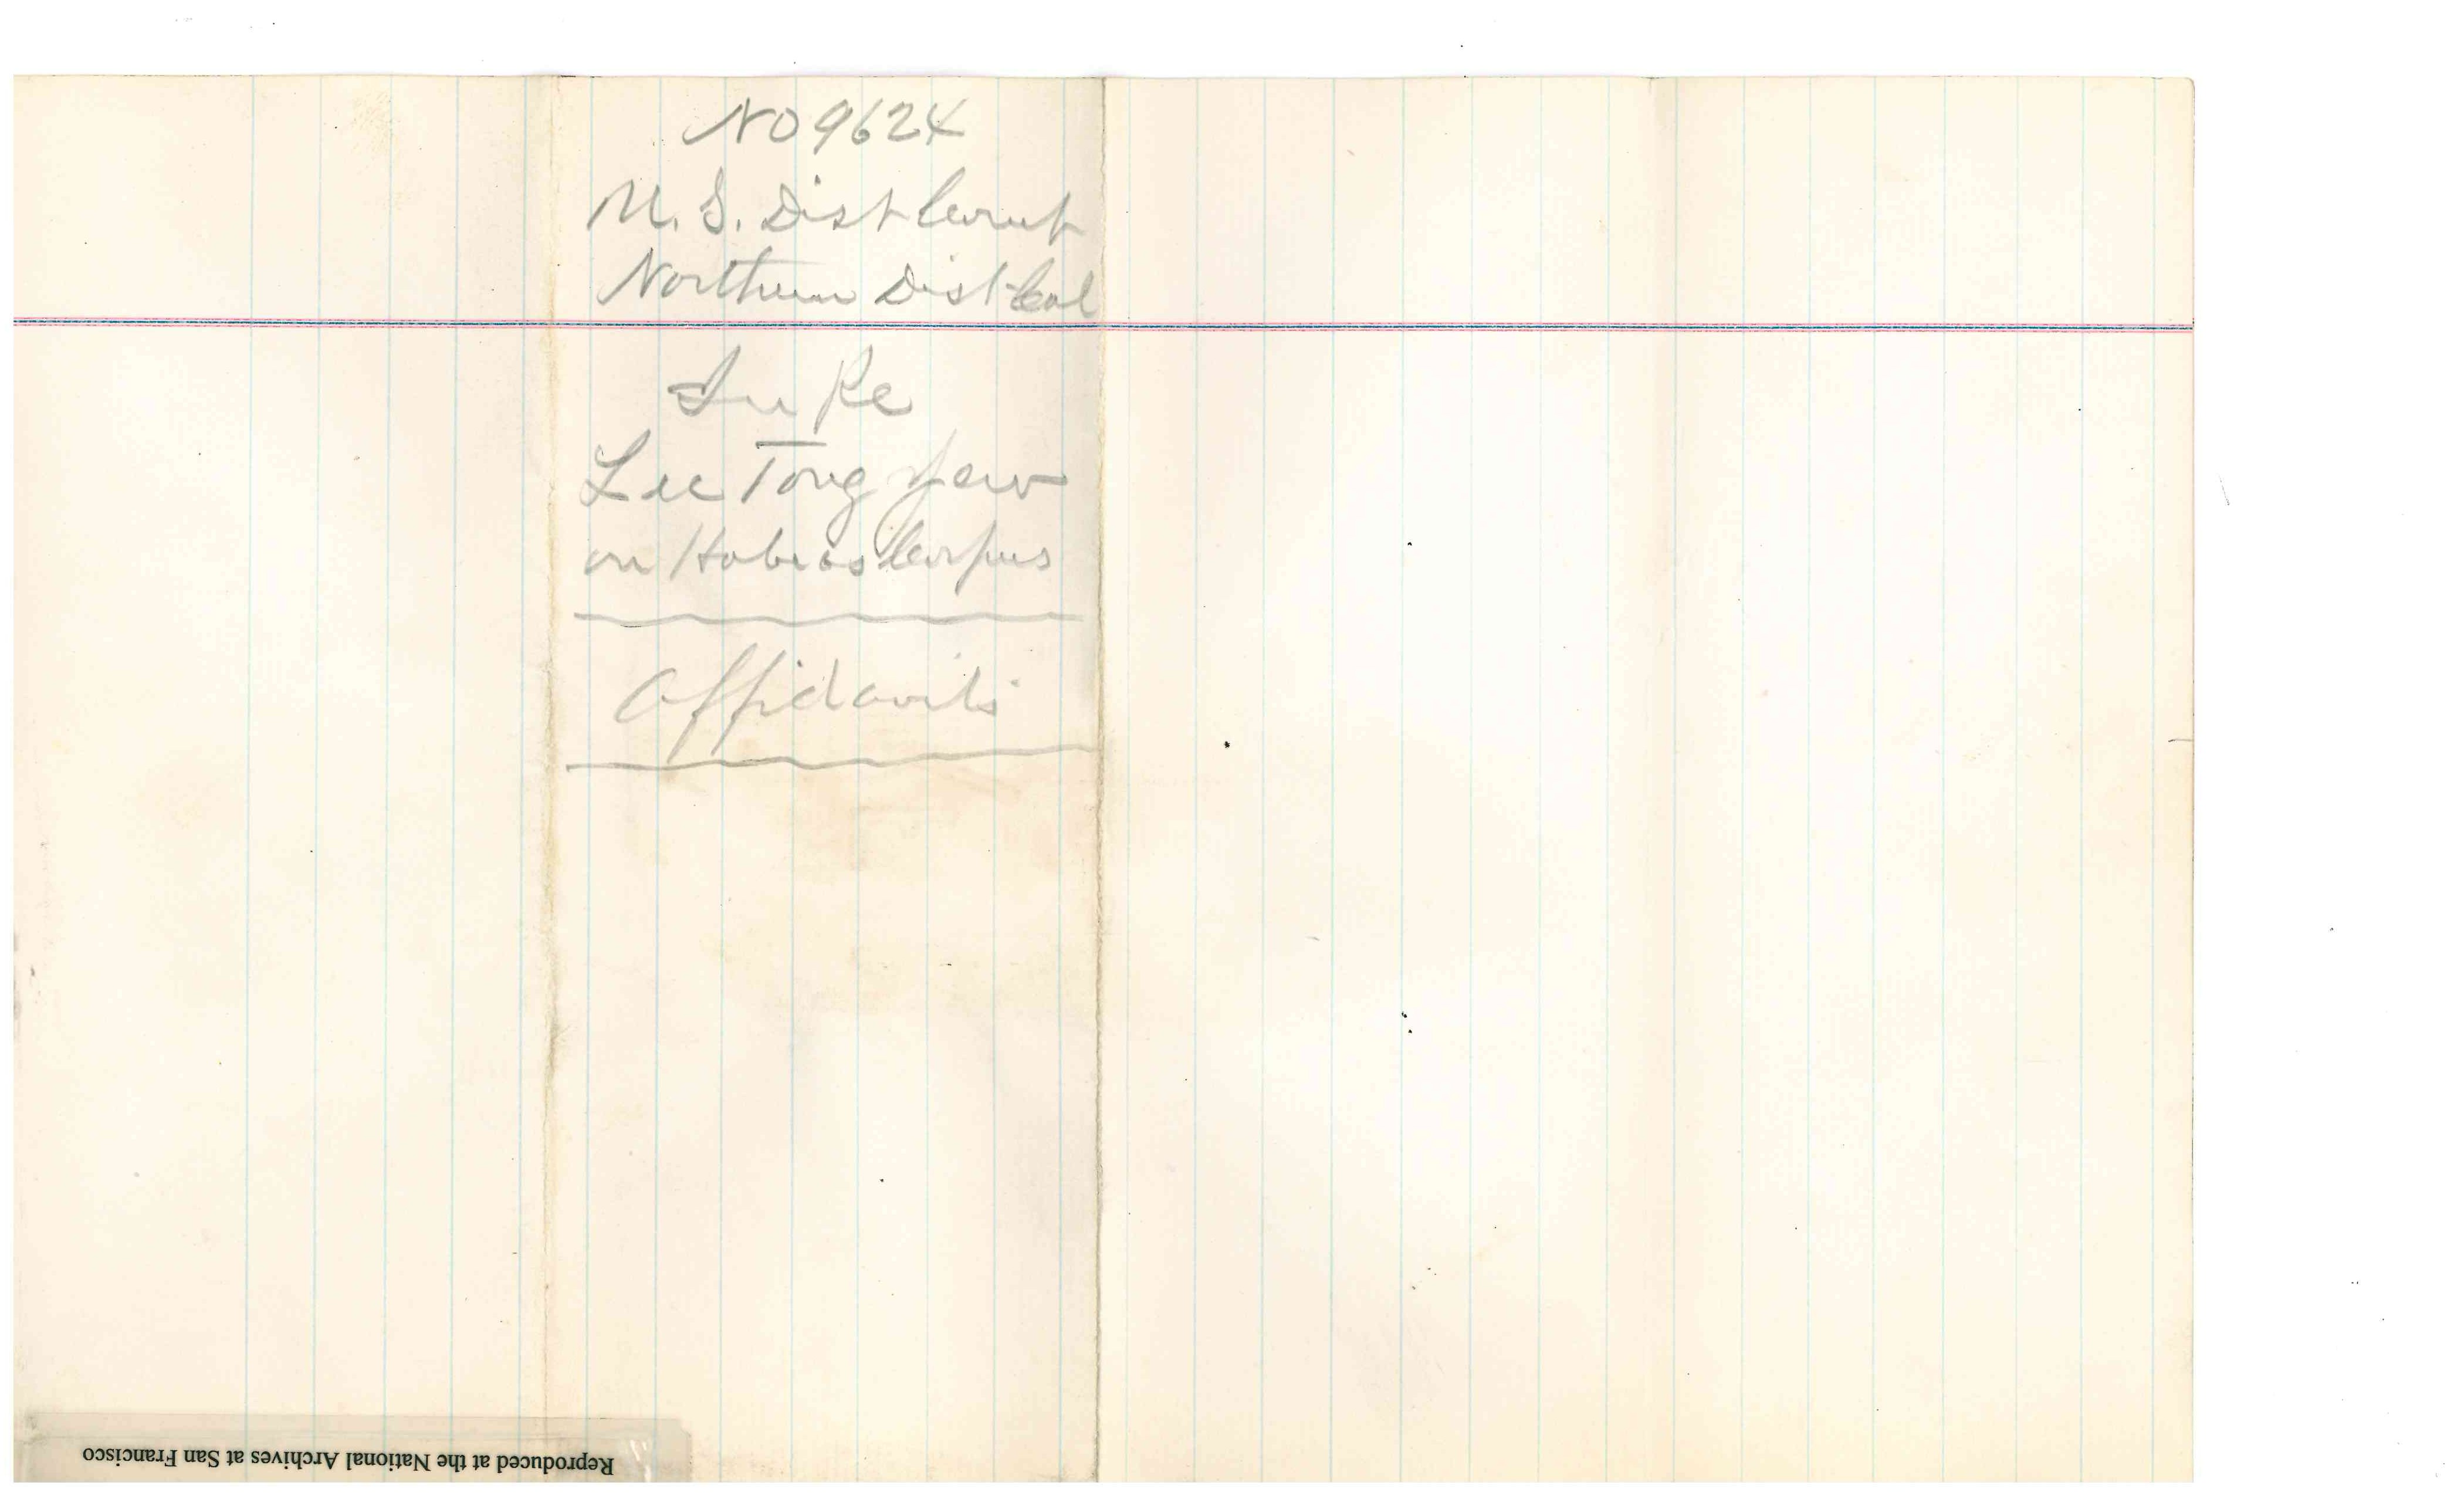 NO 9624
U. S. Dist Court
Northern Dist Cal
In Re
Lee Tong Yaw
on Habeas Corpus
Affidavits
Reproduced at the National Archives at San Francisco